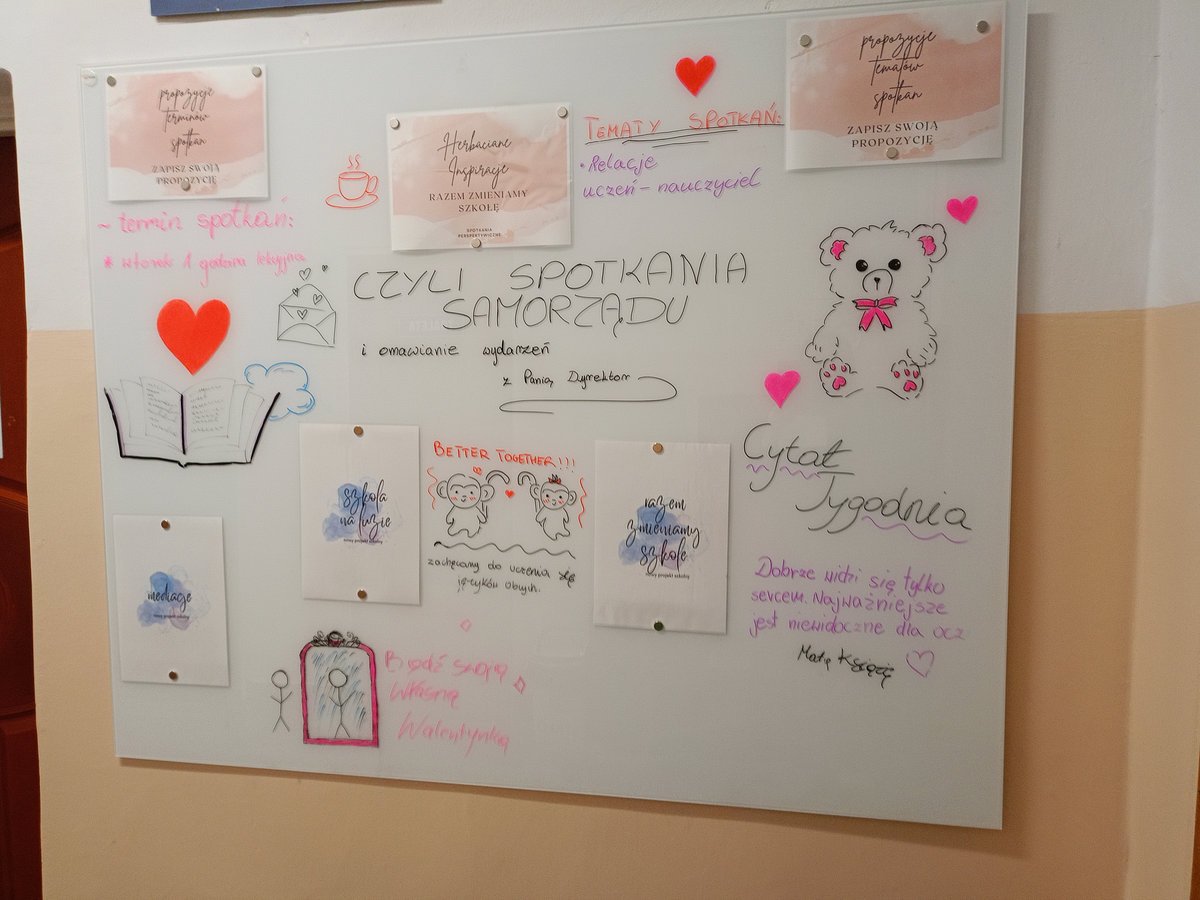 propozycje
terminów
spotkań
ZAPISZ SWOJĄ
PROPOZYCJĘ
~ termin spotkań:
* wtorek 1 godzina lekcyjna
Herbaciane
Inspiracje
RAZEM ZMIENIAMY
SZKOŁĘ
SPOTKANIA
PERSPEKTYWICZNE
TEMATY SPOTKAŃ:
• Relacje
uczeń – nauczyciel
propozycje
tematów
spotkań
ZAPISZ SWOJĄ
PROPOZYCJĘ
CZYLI SPOTKANIA
SAMORZĄDU
i omawianie wydarzeń
z Panią Dyrektor
szkoła
na luzie
nowy projekt szkolny
BETTER TOGETHER!!!
zachęcamy do uczenia się
języków obcych.
razem
zmieniamy
szkołę
nowy projekt szkolny
Cytat
Tygodnia
Dobrze widzi się tylko
sercem. Najważniejsze
jest niewidoczne dla ocz
Mały Książę
mediacje
nowy projekt szkolny
Bądź swoją
własną
Walentynką